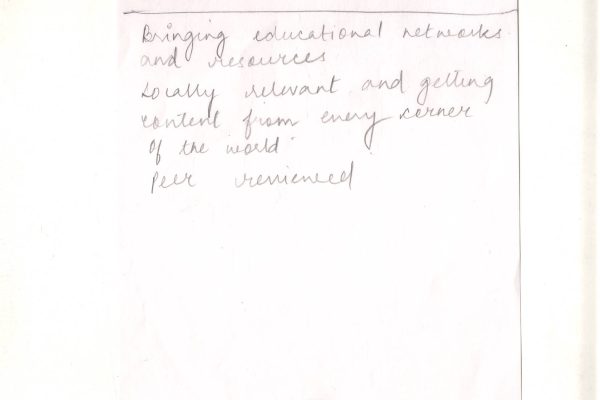 Bringing educational networks
and resources
Locally relevant and getting
content from every corner
of the world
Peer reviewed